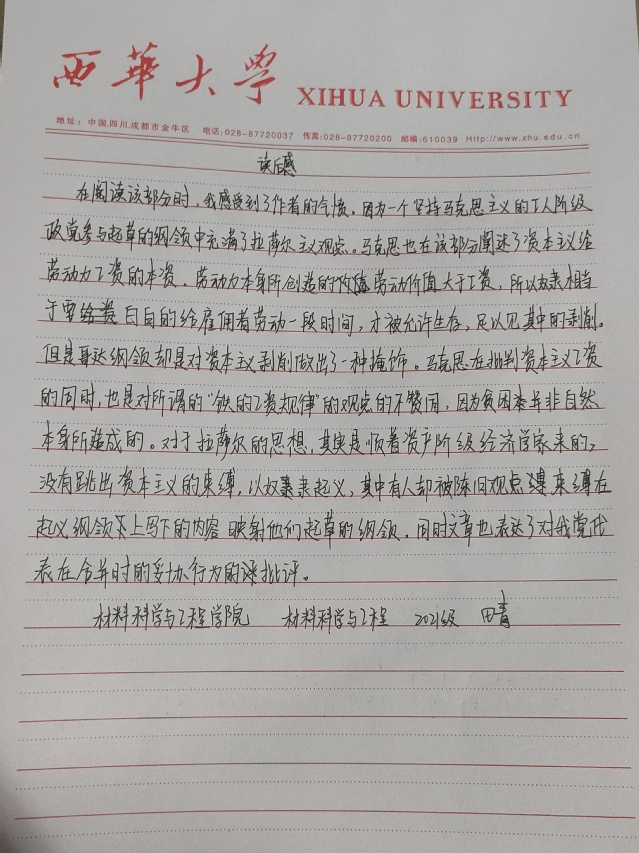 西華大學 XIHUA UNIVERSITY
地址：中国.四川.成都市金牛区 电话:028-87720037 传真:028-87720200 邮编:610039 Http://www.xhu.edu.cn
读后感
在阅读该部分时，我感受到了作者的气愤。因为一个坚持马克思主义的工人阶级
政党参与起草的纲领中充满了拉萨尔主义观点。马克思也在该部分阐述了资本主义给
劳动力工资的本资，劳动力本身所创造的价值劳动价值大于工资，所以奴隶相当
于要给资白白的给雇佣者劳动一段时间，才被允许生存，足以见其中的剥削。
但是哥达纲领却是对资本主义剥削做出了一种掩饰。马克思在批判资本主义工资
的同时，也是对所谓的“铁的工资规律”的观点的不赞同，因为贫困本并非自然
本身所造成的。对于拉萨尔的思想，其实是顺着资产阶级经济学家来的，
没有跳出资本主义的束缚，以奴隶起义，其中有人却被陈旧观点束缚在
起义纲领上写下的内容映射他们起草的纲领，同时文章也表达了对我党代
表在合并时的妥协行为的批评。
材料科学与工程学院 材料科学与工程 2021级 田青